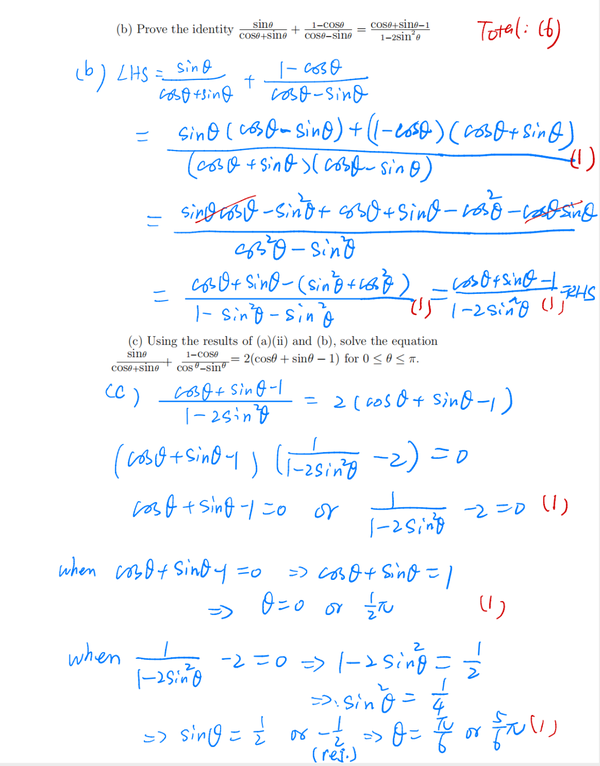 (b) Prove the identity sinθ/(cosθ+sinθ) + (1−cosθ)/(cosθ−sinθ) = (cosθ+sinθ−1)/(1−2sin²θ) Total: (6)
(b) LHS = sinθ/(cosθ+sinθ) + (1−cosθ)/(cosθ−sinθ)
= (sinθ(cosθ−sinθ)+(1−cosθ)(cosθ+sinθ))/((cosθ+sinθ)(cosθ−sinθ)) (1)
= (sinθcosθ−sin²θ+cosθ+sinθ−cos²θ−cosθsinθ)/(cos²θ−sin²θ)
= (cosθ+sinθ−(sin²θ+cos²θ))/(1−sin²θ−sin²θ) (1) = (cosθ+sinθ−1)/(1−2sin²θ) (1) =RHS
(c) Using the results of (a)(ii) and (b), solve the equation
sinθ/(cosθ+sinθ) + (1−cosθ)/(cosθ−sinθ) = 2(cosθ + sinθ − 1) for 0 ≤ θ ≤ π.
(c) (cosθ+sinθ−1)/(1−2sin²θ) = 2(cosθ+sinθ−1)
(cosθ+sinθ−1)(1/(1−2sin²θ) −2)=0
cosθ+sinθ−1=0 or 1/(1−2sin²θ) −2=0 (1)
when cosθ+sinθ−1=0 ⇒ cosθ+sinθ=1
⇒ θ=0 or ½π (1)
when 1/(1−2sin²θ) −2=0 ⇒ 1−2sin²θ = 1/2
⇒ sin²θ = 1/4
⇒ sinθ = 1/2 or −1/2 (rej.) ⇒ θ= π/6 or 5/6π (1)